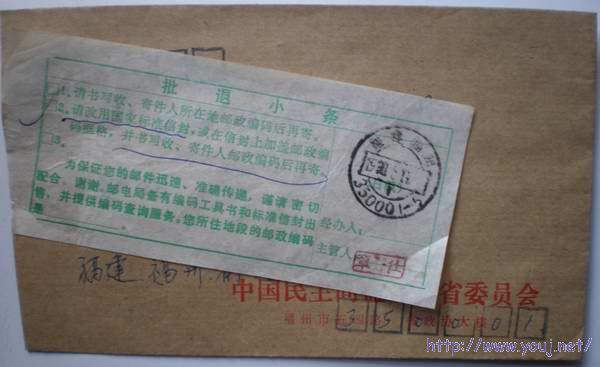 批退小条
1. 请书写收、寄件人所在地邮政编码后再寄。
2. 请改用国家标准信封,或在信封上加盖邮政编
码框格,并书写收、寄件人邮政编码后再寄。
3.
为保证您的邮件迅速、准确传递,谨请密切
配合,谢谢。邮电局备有编码工具书和标准信封出
售,并提供编码查询服务。您所住地段的邮政编码
是
经办人:
主管人
福建
350001-5
福建 福州
中国民主 省委员会
福州市 大楼
3 5 0 0 0 1
http://www.youj.net/